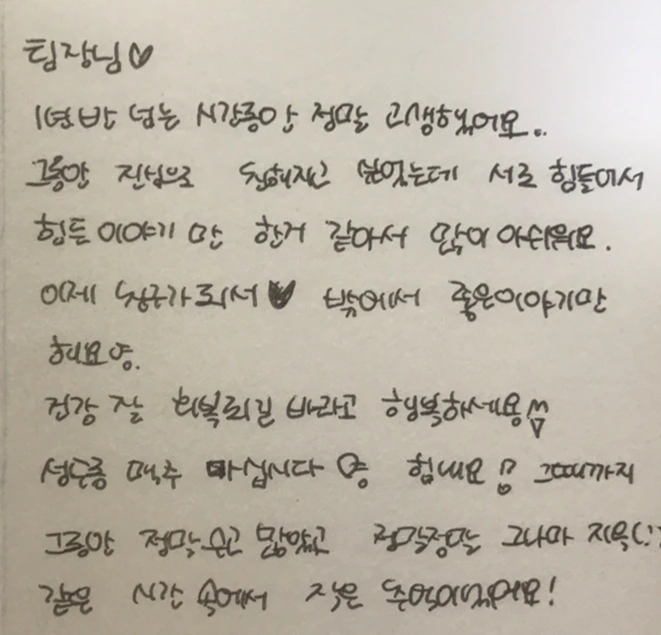 팀장님♡
1년반 넘는 시간동안 정말 고생했어요..
그동안 진심으로 친해지고 싶었는데 서로 힘들어서
힘든 이야기 만 한거 같아서 많이 아쉬워요.
이제 친구가되서♥ 밖에서 좋은이야기만
해요영.
건강 잘 회복되길 바라고 행복하세용
성수동 맥주 마십시다 힘내요 그때까지
그동안 정말 수고 많았고 정말정말 그나마 지옥(?)
같은 시간 속에서 작은 추억이었어요!